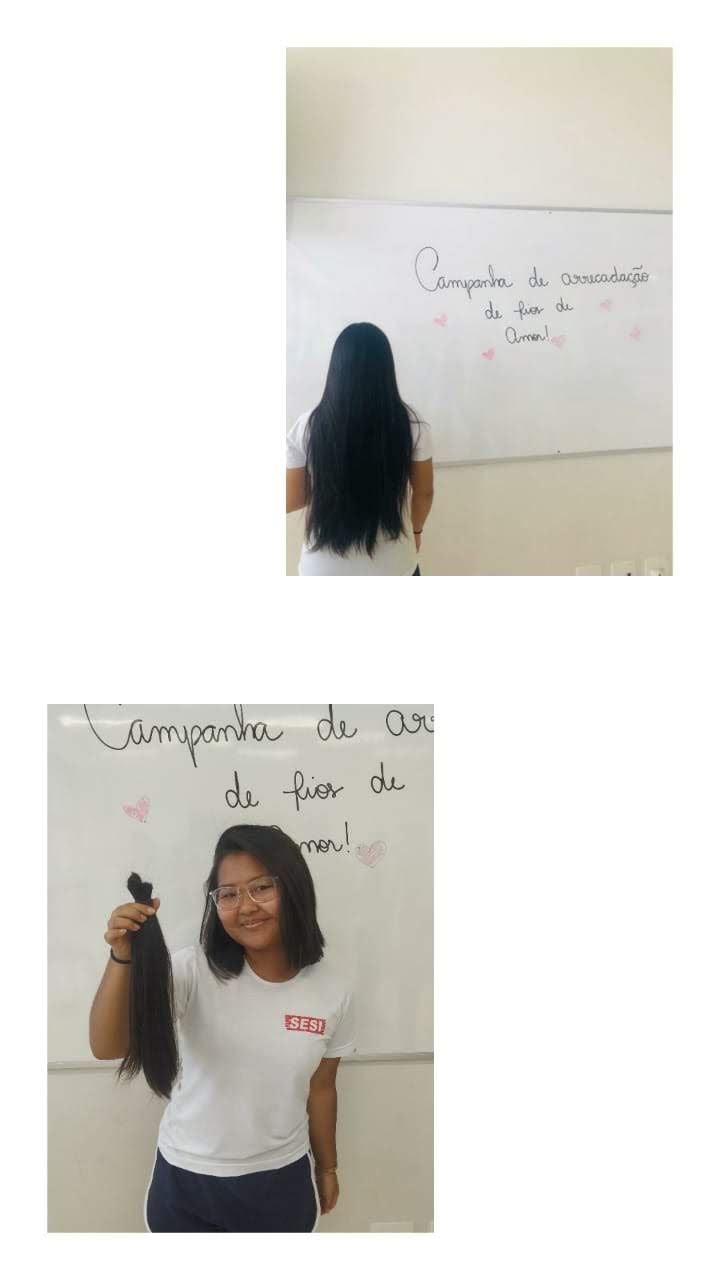 Campanha de arrecadação
de fios de
Amor!
Campanha de ar
de fios de
mor!
SESI